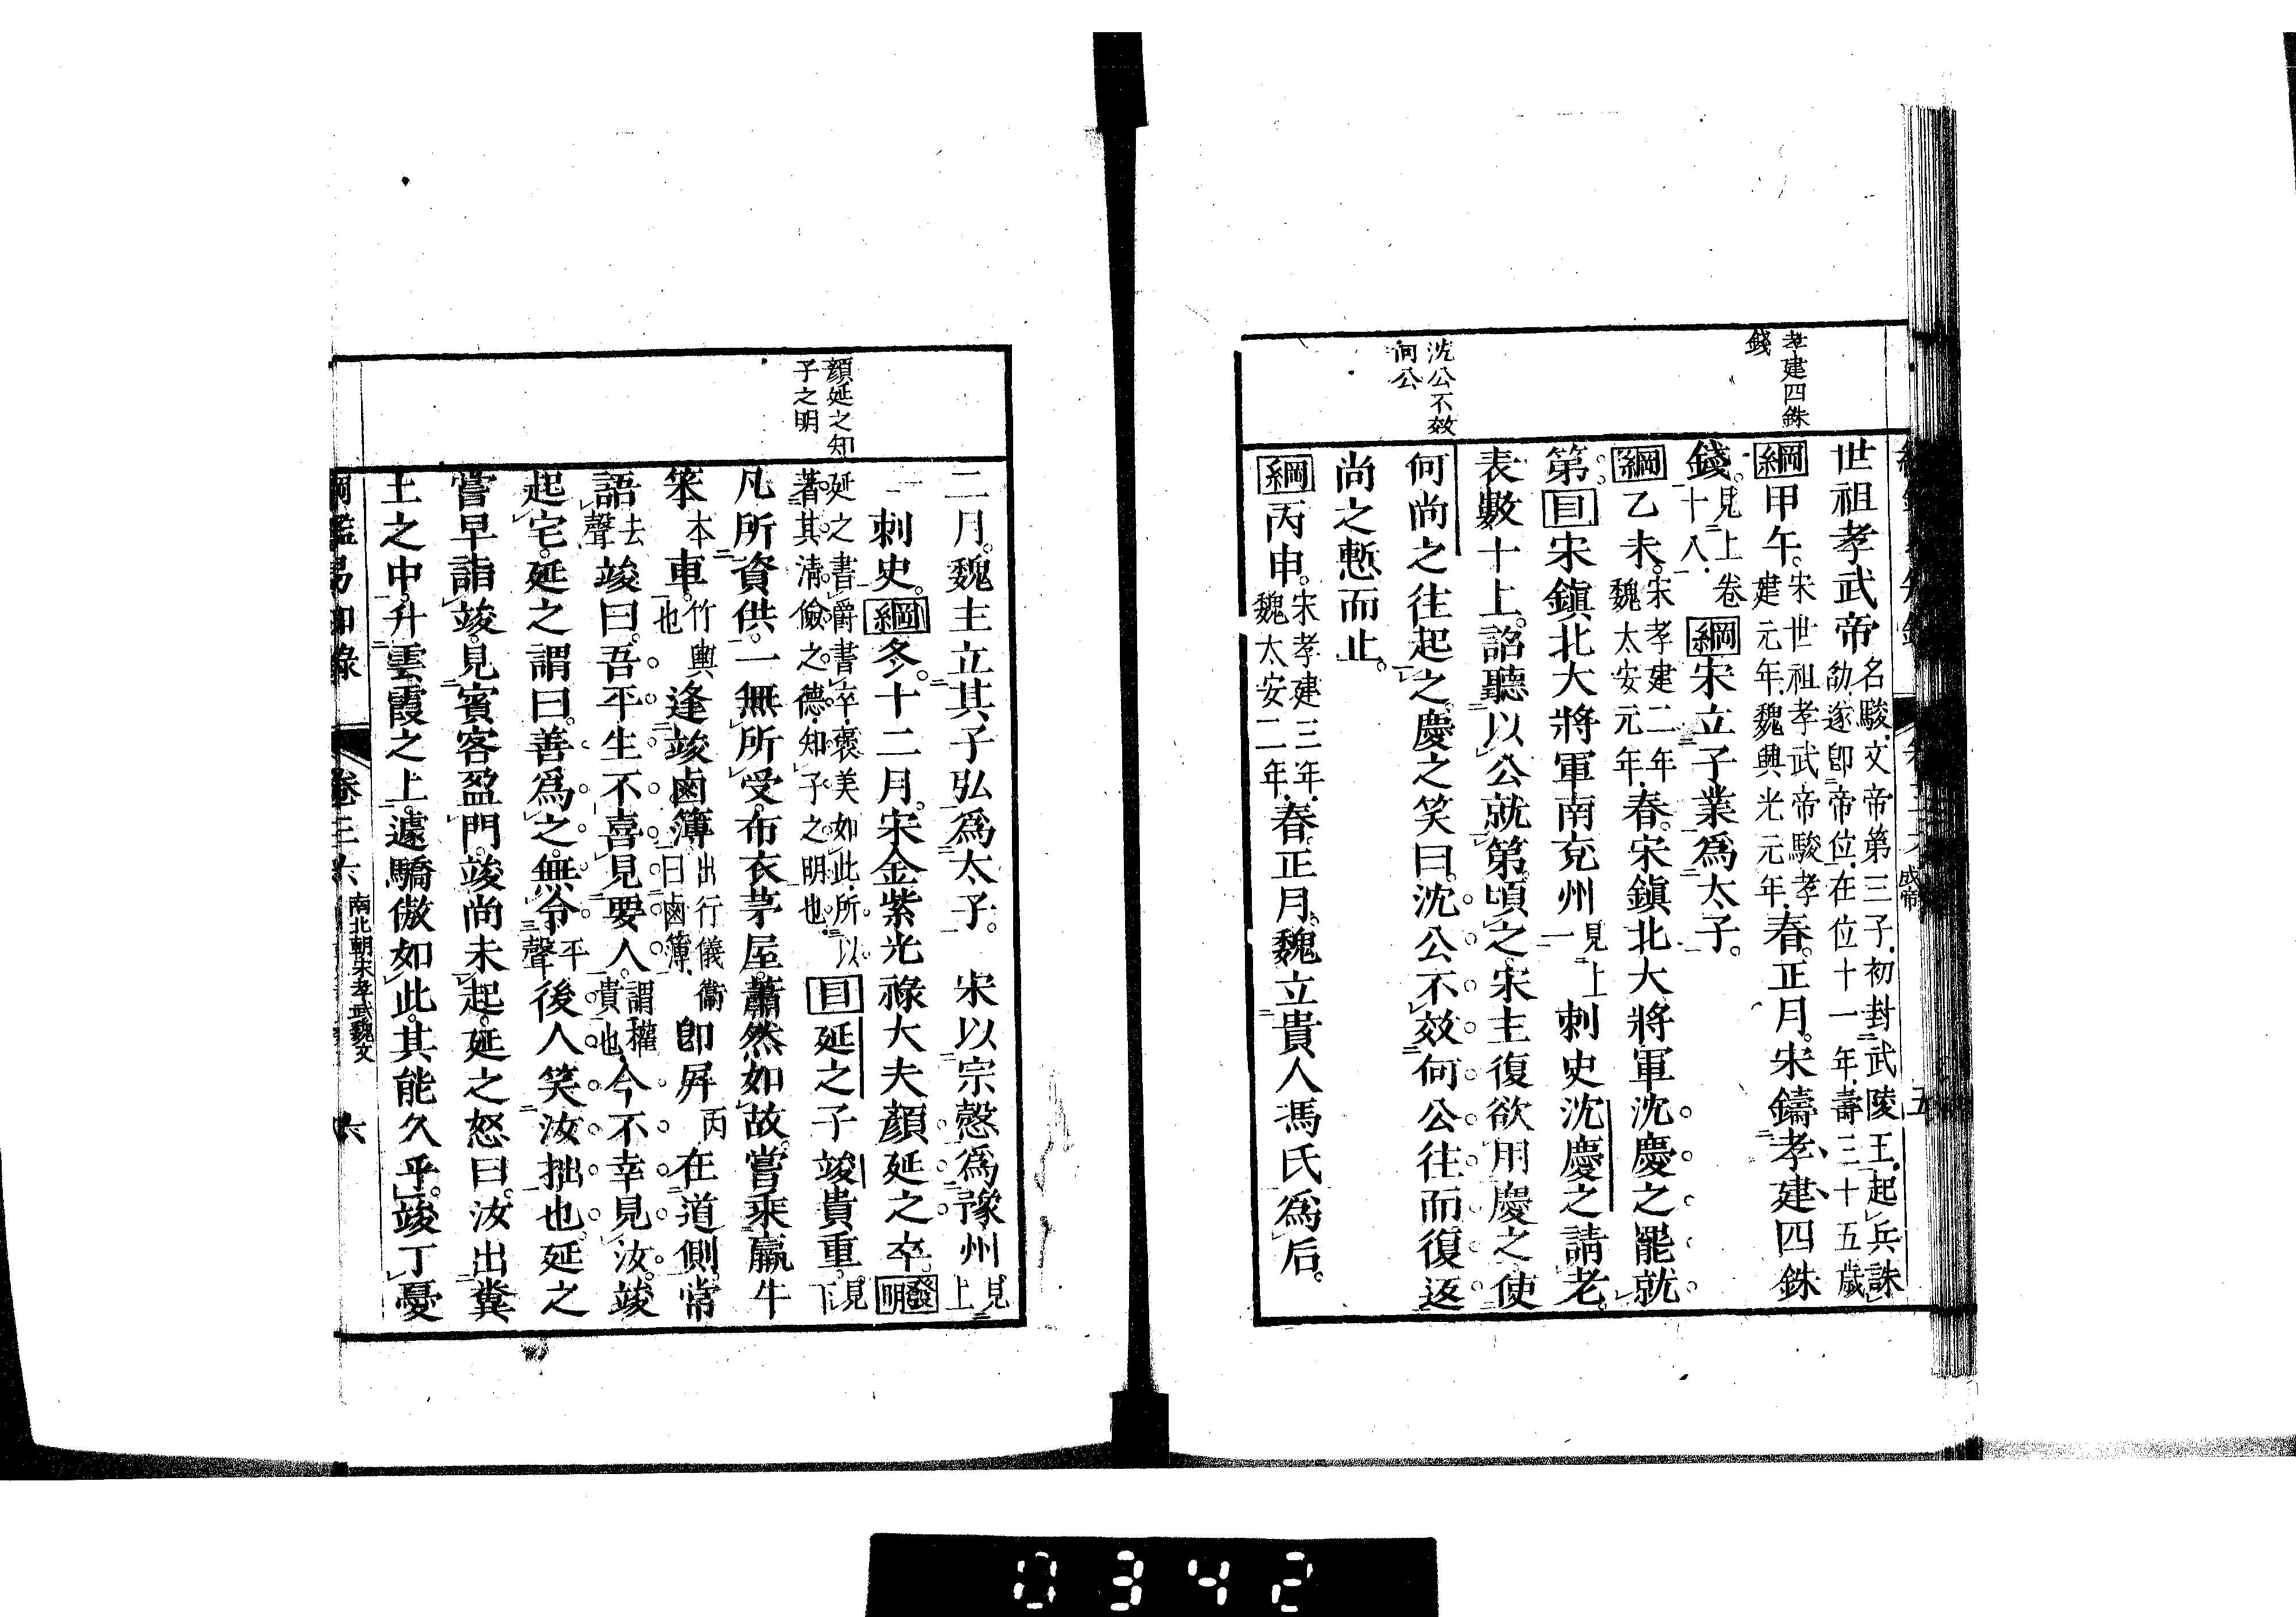 孝建四銖
錢
沈公不效
何公
世祖孝武帝名駿文帝第三子初封武陵王起兵誅
劭遂卽帝位在位十一年壽三十五歲
綱甲午宋世祖孝武帝駿孝
建元年魏興光元年春正月宋鑄孝建四銖
錢見上卷
十八綱宋立子業爲太子
綱乙未宋孝建二年
魏太安元年春宋鎭北大將軍沈慶之罷就
第目宋鎭北大將軍南兗州見上
一刺史沈慶之請老
表數十上詔聽以公就第頃之宋主復欲用慶之使
何尚之往起之慶之笑曰沈公不效何公往而復返
尚之慙而止
綱丙申宋孝建三年
魏太安二年春正月魏立貴人馮氏爲后
五
顏延之知
子之明
二月魏主立其子弘爲太子宋以宗慤爲豫州見
上
一刺史綱冬十二月宋金紫光祿大夫顏延之卒發明
延之書爵書卒褒美如此所以
著其清儉之德知子之明也目延之子竣貴重見
下
凡所資供一無所受布衣茅屋蕭然如故嘗乘羸牛
笨本車竹輿
也逢竣鹵簿出行儀衞
曰鹵簿卽屛丙在道側常
語去
聲竣曰吾平生不喜見要人謂權
貴也今不幸見汝竣
起宅延之謂曰善爲之無令平
聲後人笑汝拙也延之
嘗早詣竣見賓客盈門竣尚未起延之怒曰汝出糞
土之中升雲霞之上遽驕傲如此其能久乎竣丁憂
綱鑑易知錄 卷三六 南北朝宋孝武魏文 六
0342